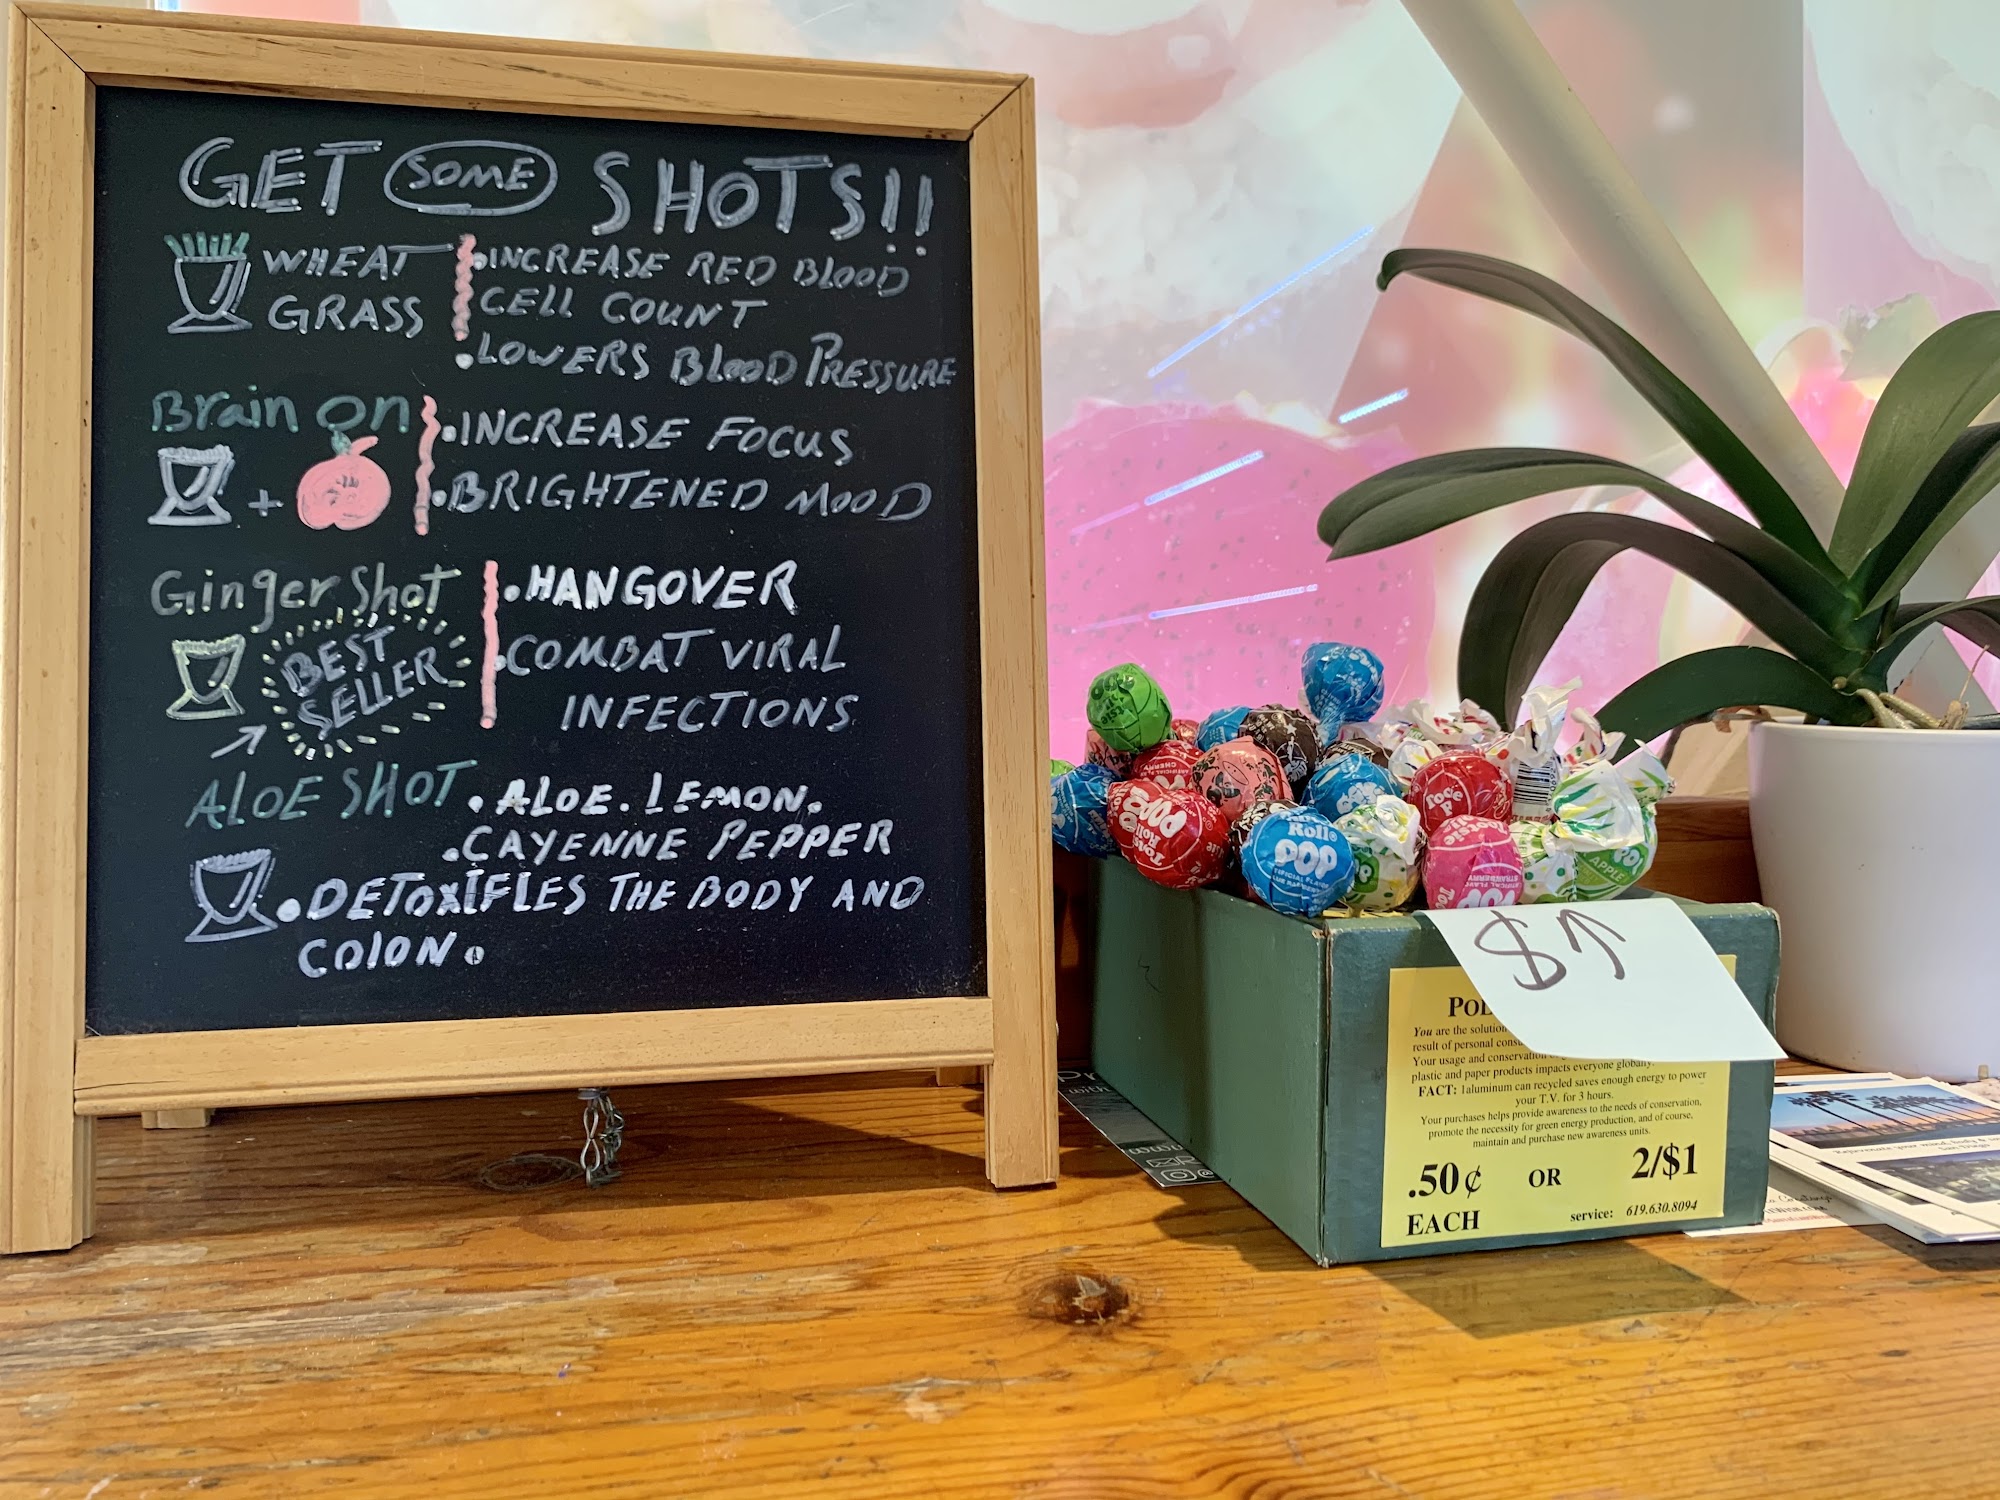 GET SOME SHOTS!!
WHEAT
GRASS
.INCREASE RED BLOOD
CELL COUNT
.LOWERS BLOOD PRESSURE
Brain on
+
.INCREASE FOCUS
.BRIGHTENED MOOD
Ginger Shot
BEST
SELLER
.HANGOVER
.COMBAT VIRAL
INFECTIONS
ALOE SHOT
.ALOE. LEMON.
.CAYENNE PEPPER
.DETOXIFIES THE BODY AND
COLON.
CHERRY
Tootsie
Roll
POP
Roll
POP
Tootsie
STRAWBERRY
APPLE
$1
You are the solution
result of personal
Your usage and conservation
plastic and paper products impacts everyone globally.
FACT: 1aluminum can recycled saves enough energy to power
your T.V. for 3 hours.
Your purchases helps provide awareness to the needs of conservation,
promote the necessity for green energy production, and of course,
maintain and purchase new awareness units.
.50¢ OR 2/$1
EACH
service: 619.630.8094
San Diego